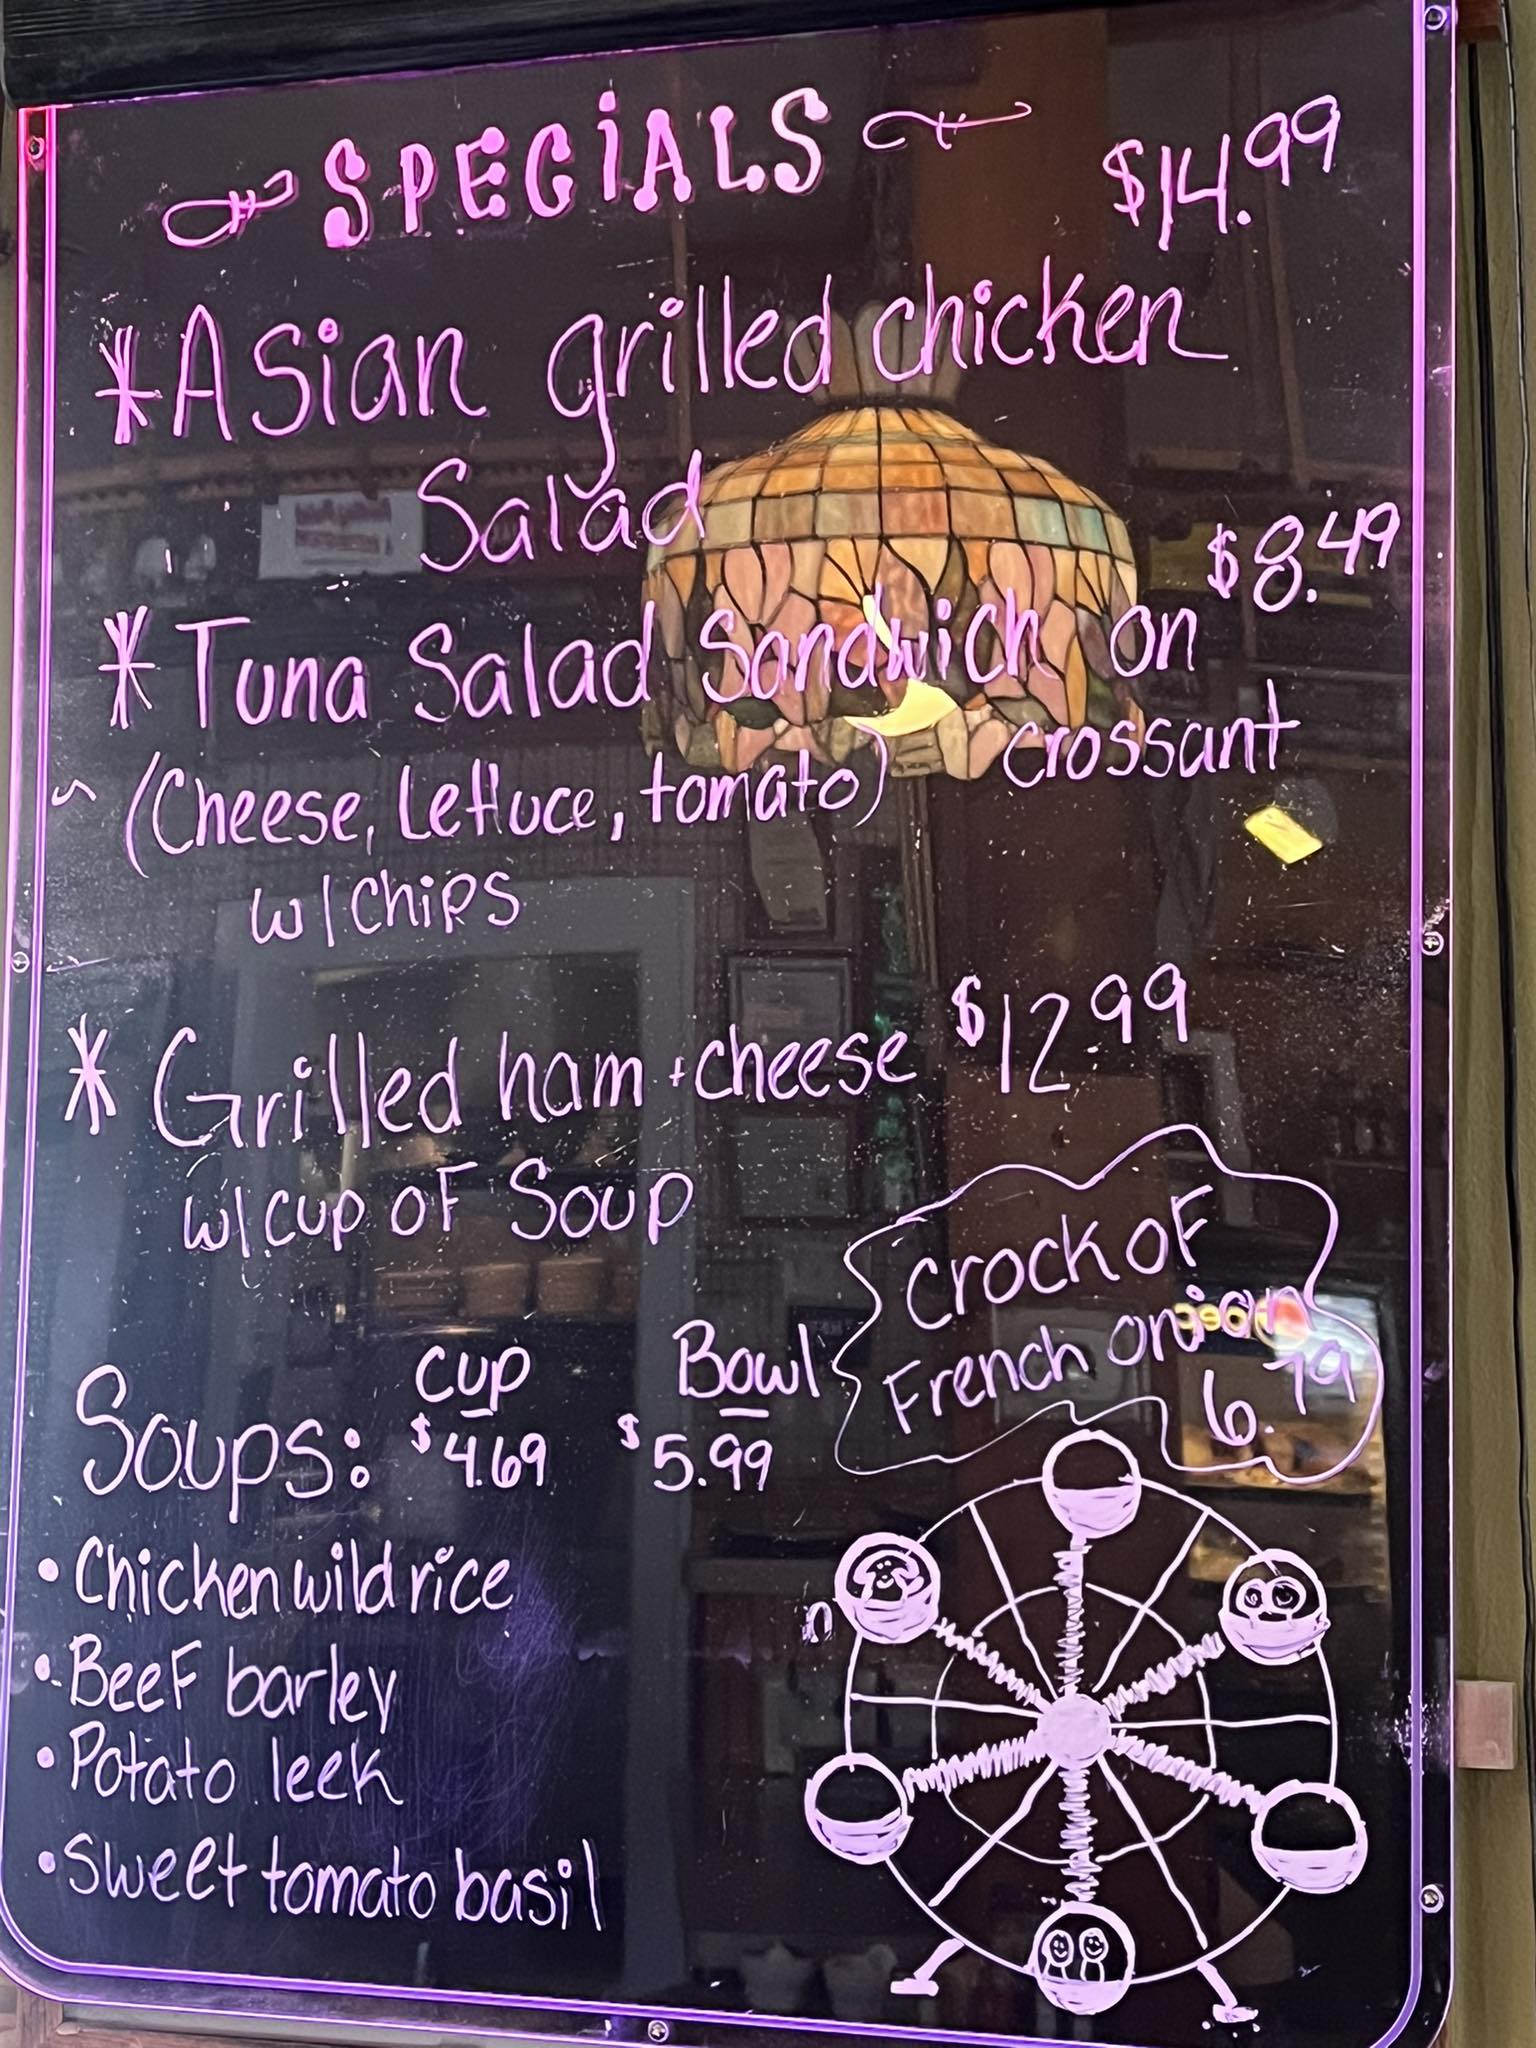 SPECiALS
$14.99
*Asian grilled chicken
Salad
$8.49
*Tuna Salad Sandwich on
crossant
~ (Cheese, Lettuce, tomato)
w/chips
* Grilled ham + cheese $12.99
w/cup of Soup
Crock of
French onion
6.79
Soups: Cup Bowl
$4.69 $5.99
• Chicken wild rice
• Beef barley
• Potato leek
• Sweet tomato basil